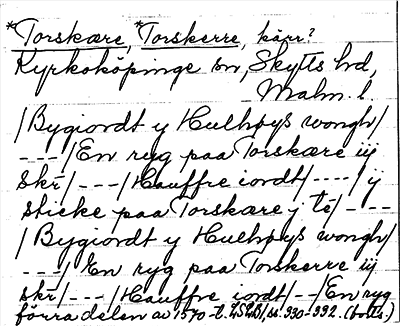 *Torskære, *Torskerre, kärr?
Kyrkoköpinge sn, Skytts hd,
Malm. l
/Bygiordt y Hulhøys wongh/
---/En ryg paa Torskære iij
skr/---/Hauffre iordt/----/ij
sticke paa Torskære j te/---
/Bygiordt y Hulhøys wongh/
---/En ryg paa Torskerre iij
skr/---/Hauffre iordt/--/En ryg
förra delen av 1570-t. ss. 990-992. (botts.)